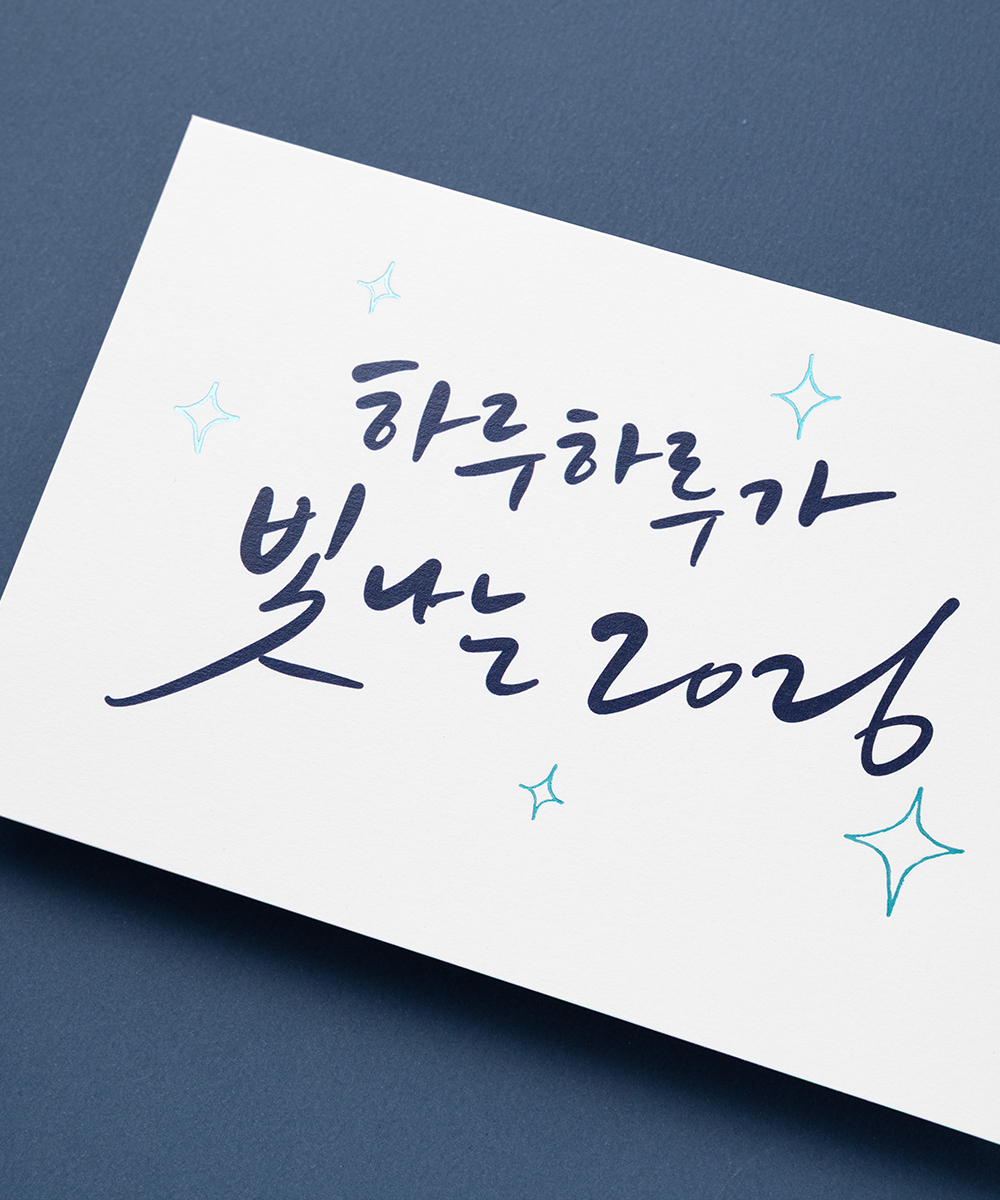 하루하루가
빛나는 2026